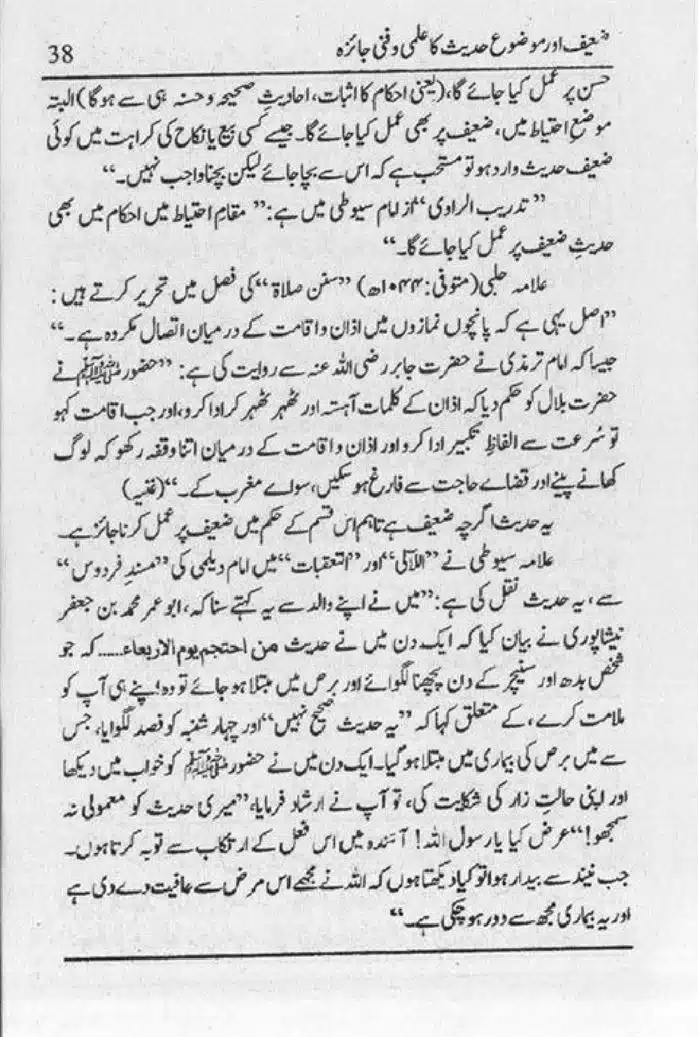 ضعیف اور موضوع حدیث کا علمی و فنی جائزہ
38
حسن پر عمل کیا جائے گا، (یعنی احکام کا اثبات، احادیثِ صحیحہ و حسنہ ہی سے ہوگا) البتہ
موضعِ احتیاط میں، ضعیف پر بھی عمل کیا جائے گا۔ جیسے کسی بیع یا نکاح کی کراہت میں کوئی
ضعیف حدیث وارد ہو تو مستحب ہے کہ اس سے بچا جائے لیکن بچنا واجب نہیں۔“
”تدریب الراوی“ از امام سیوطی میں ہے: ”مقامِ احتیاط میں احکام میں بھی
حدیثِ ضعیف پر عمل کیا جائے گا۔“
علامہ حلبی (متوفی: ۱۰۴۴ھ) ”سنن صلاۃ“ کی فصل میں تحریر کرتے ہیں:
”اصل یہی ہے کہ پانچوں نمازوں میں اذان و اقامت کے درمیان اتصال مکروہ ہے۔“
جیسا کہ امام ترمذی نے حضرت جابر رضی اللہ عنہ سے روایت کی ہے: ”حضور ﷺ نے
حضرت بلال کو حکم دیا کہ اذان کے کلمات آہستہ اور ٹھہر ٹھہر کر ادا کرو، اور جب اقامت کہو
تو سُرعت سے الفاظِ تکبیر ادا کرو اور اذان و اقامت کے درمیان اتنا وقفہ رکھو کہ لوگ
کھانے پینے اور قضاے حاجت سے فارغ ہو سکیں، سواے مغرب کے۔“ (غنیہ)
یہ حدیث اگرچہ ضعیف ہے تاہم اس قسم کے حکم میں ضعیف پر عمل کرنا جائز ہے۔
علامہ سیوطی نے ”اللآلی“ اور ”التعقبات“ میں امام دیلمی کی ”مسندِ فردوس“
سے، یہ حدیث نقل کی ہے: ”میں نے اپنے والد سے یہ کہتے سنا کہ، ابو عمر محمد بن جعفر
نیشاپوری نے بیان کیا کہ ایک دن میں نے حدیث من احتجم یوم الاربعاء..... کہ جو
شخص بدھ اور سنیچر کے دن پچھنا لگوائے اور برص میں مبتلا ہو جائے تو وہ اپنے ہی آپ کو
ملامت کرے، کے متعلق کہا کہ ”یہ حدیث صحیح نہیں“ اور چہار شنبہ کو فصد لگوایا، جس
سے میں برص کی بیماری میں مبتلا ہو گیا۔ ایک دن میں نے حضور ﷺ کو خواب میں دیکھا
اور اپنی حالتِ زار کی شکایت کی، تو آپ نے ارشاد فرمایا، ”میری حدیث کو معمولی نہ
سمجھو!“ عرض کیا یا رسول اللہ! آئندہ میں اس فعل کے ارتکاب سے توبہ کرتا ہوں۔
جب نیند سے بیدار ہوا تو کیا دیکھتا ہوں کہ اللہ نے مجھے اس مرض سے عافیت دے دی ہے
اور یہ بیماری مجھ سے دور ہو چکی ہے۔“